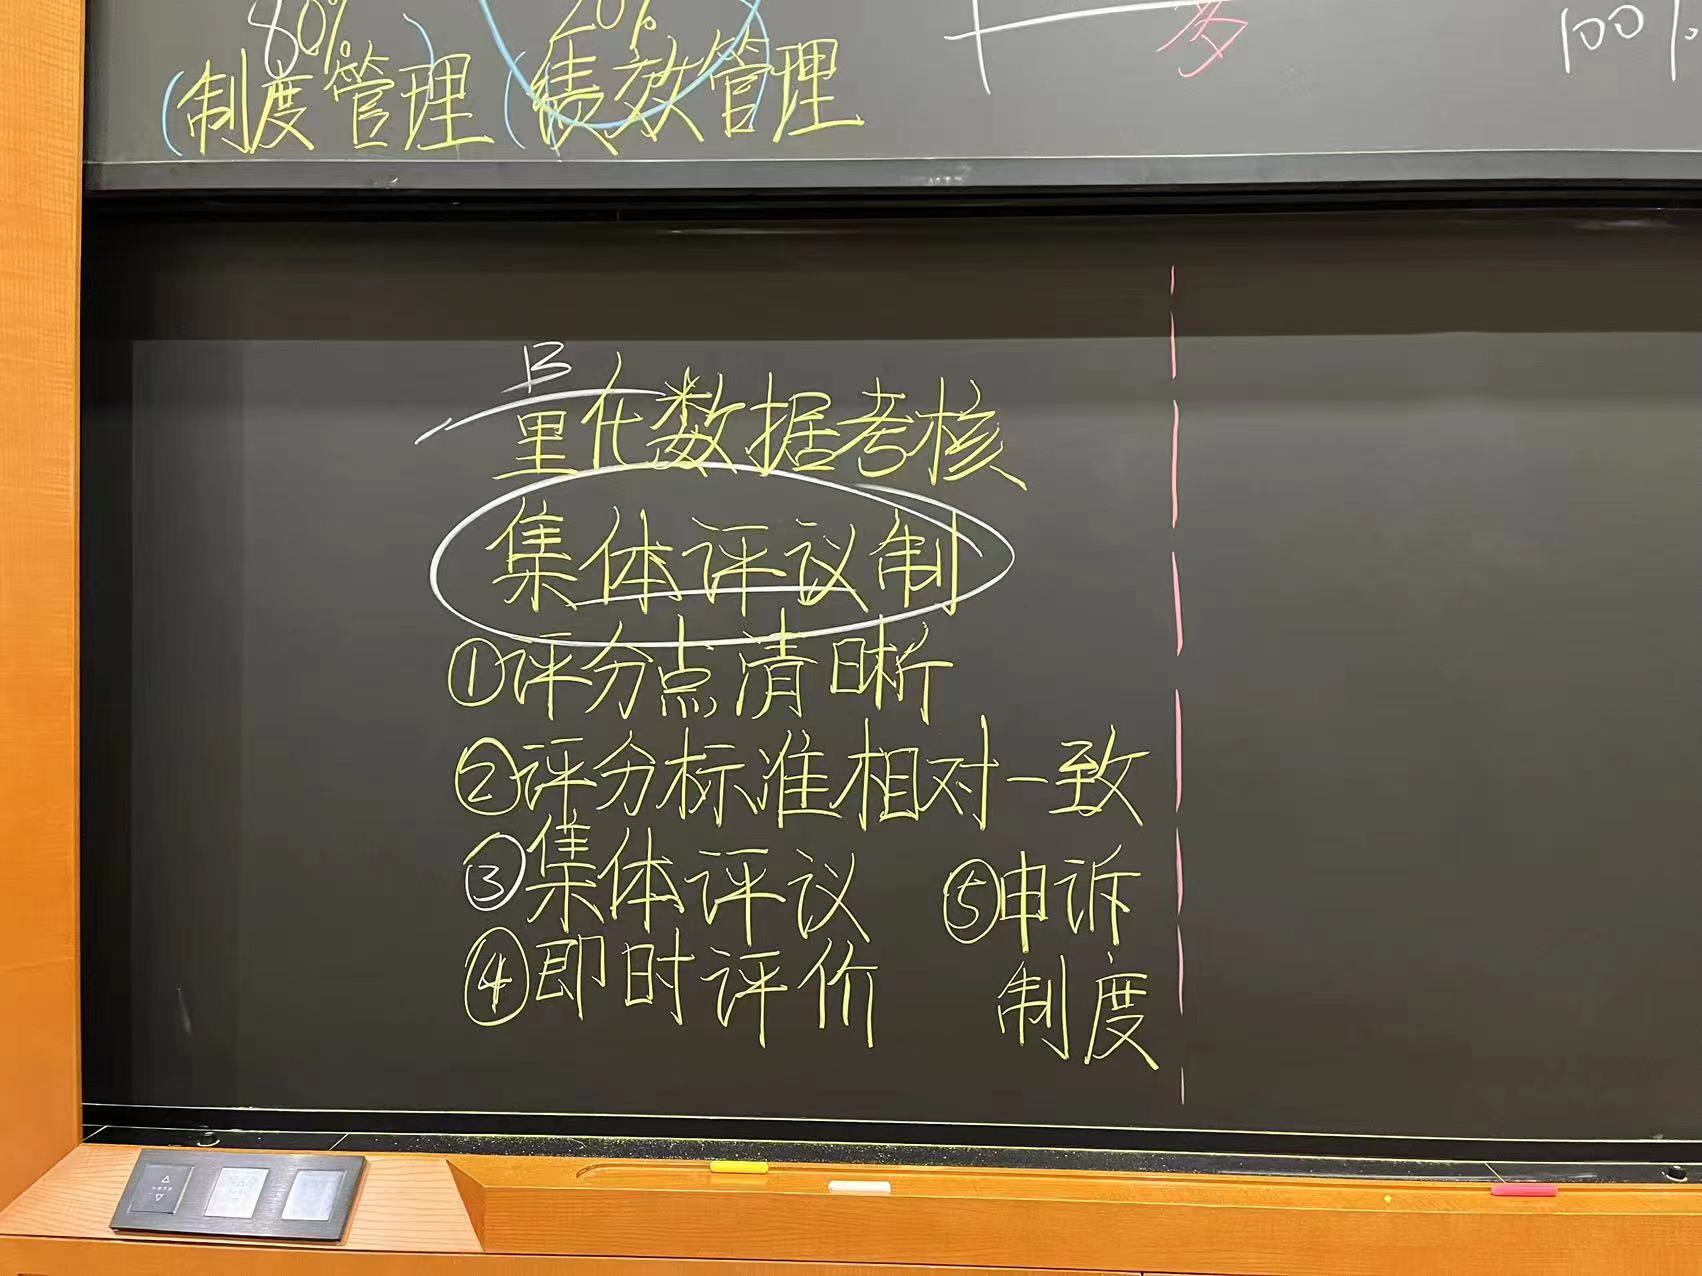 80% 20%
(制度管理 (绩效管理
多
100%
B
量化数据考核
集体评议制
①评分点清晰
②评分标准相对一致
③集体评议
④即时评价
⑤申诉
制度